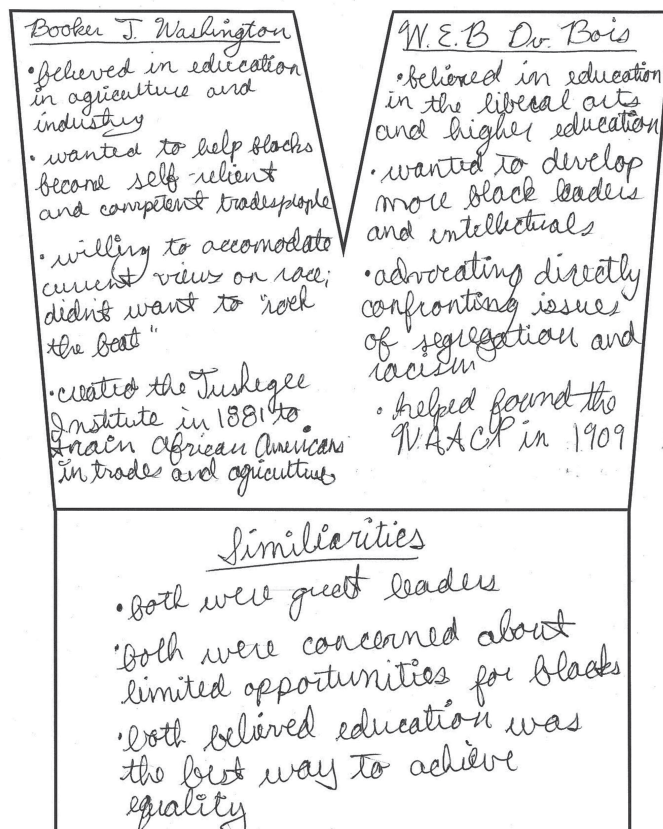 Booker T. Washington
• believed in education
in agriculture and
industry
• wanted to help blacks
become self-relient
and competent tradespeople
• willing to accomodate
current views on race;
didn't want to "rock
the boat"
• created the Tuskegee
Institute in 1881 to
train African Americans
in trades and agriculture
W.E.B Du. Bois
• believed in education
in the liberal arts
and higher education
• wanted to develop
more black leaders
and intellectuals
• advocating directly
confronting issues
of segregation and
racism
• helped found the
NAACP in 1909
Similiarities
• both were great leaders
• both were concerned about
limited opportunities for blacks
• both believed education was
the best way to achieve
equality